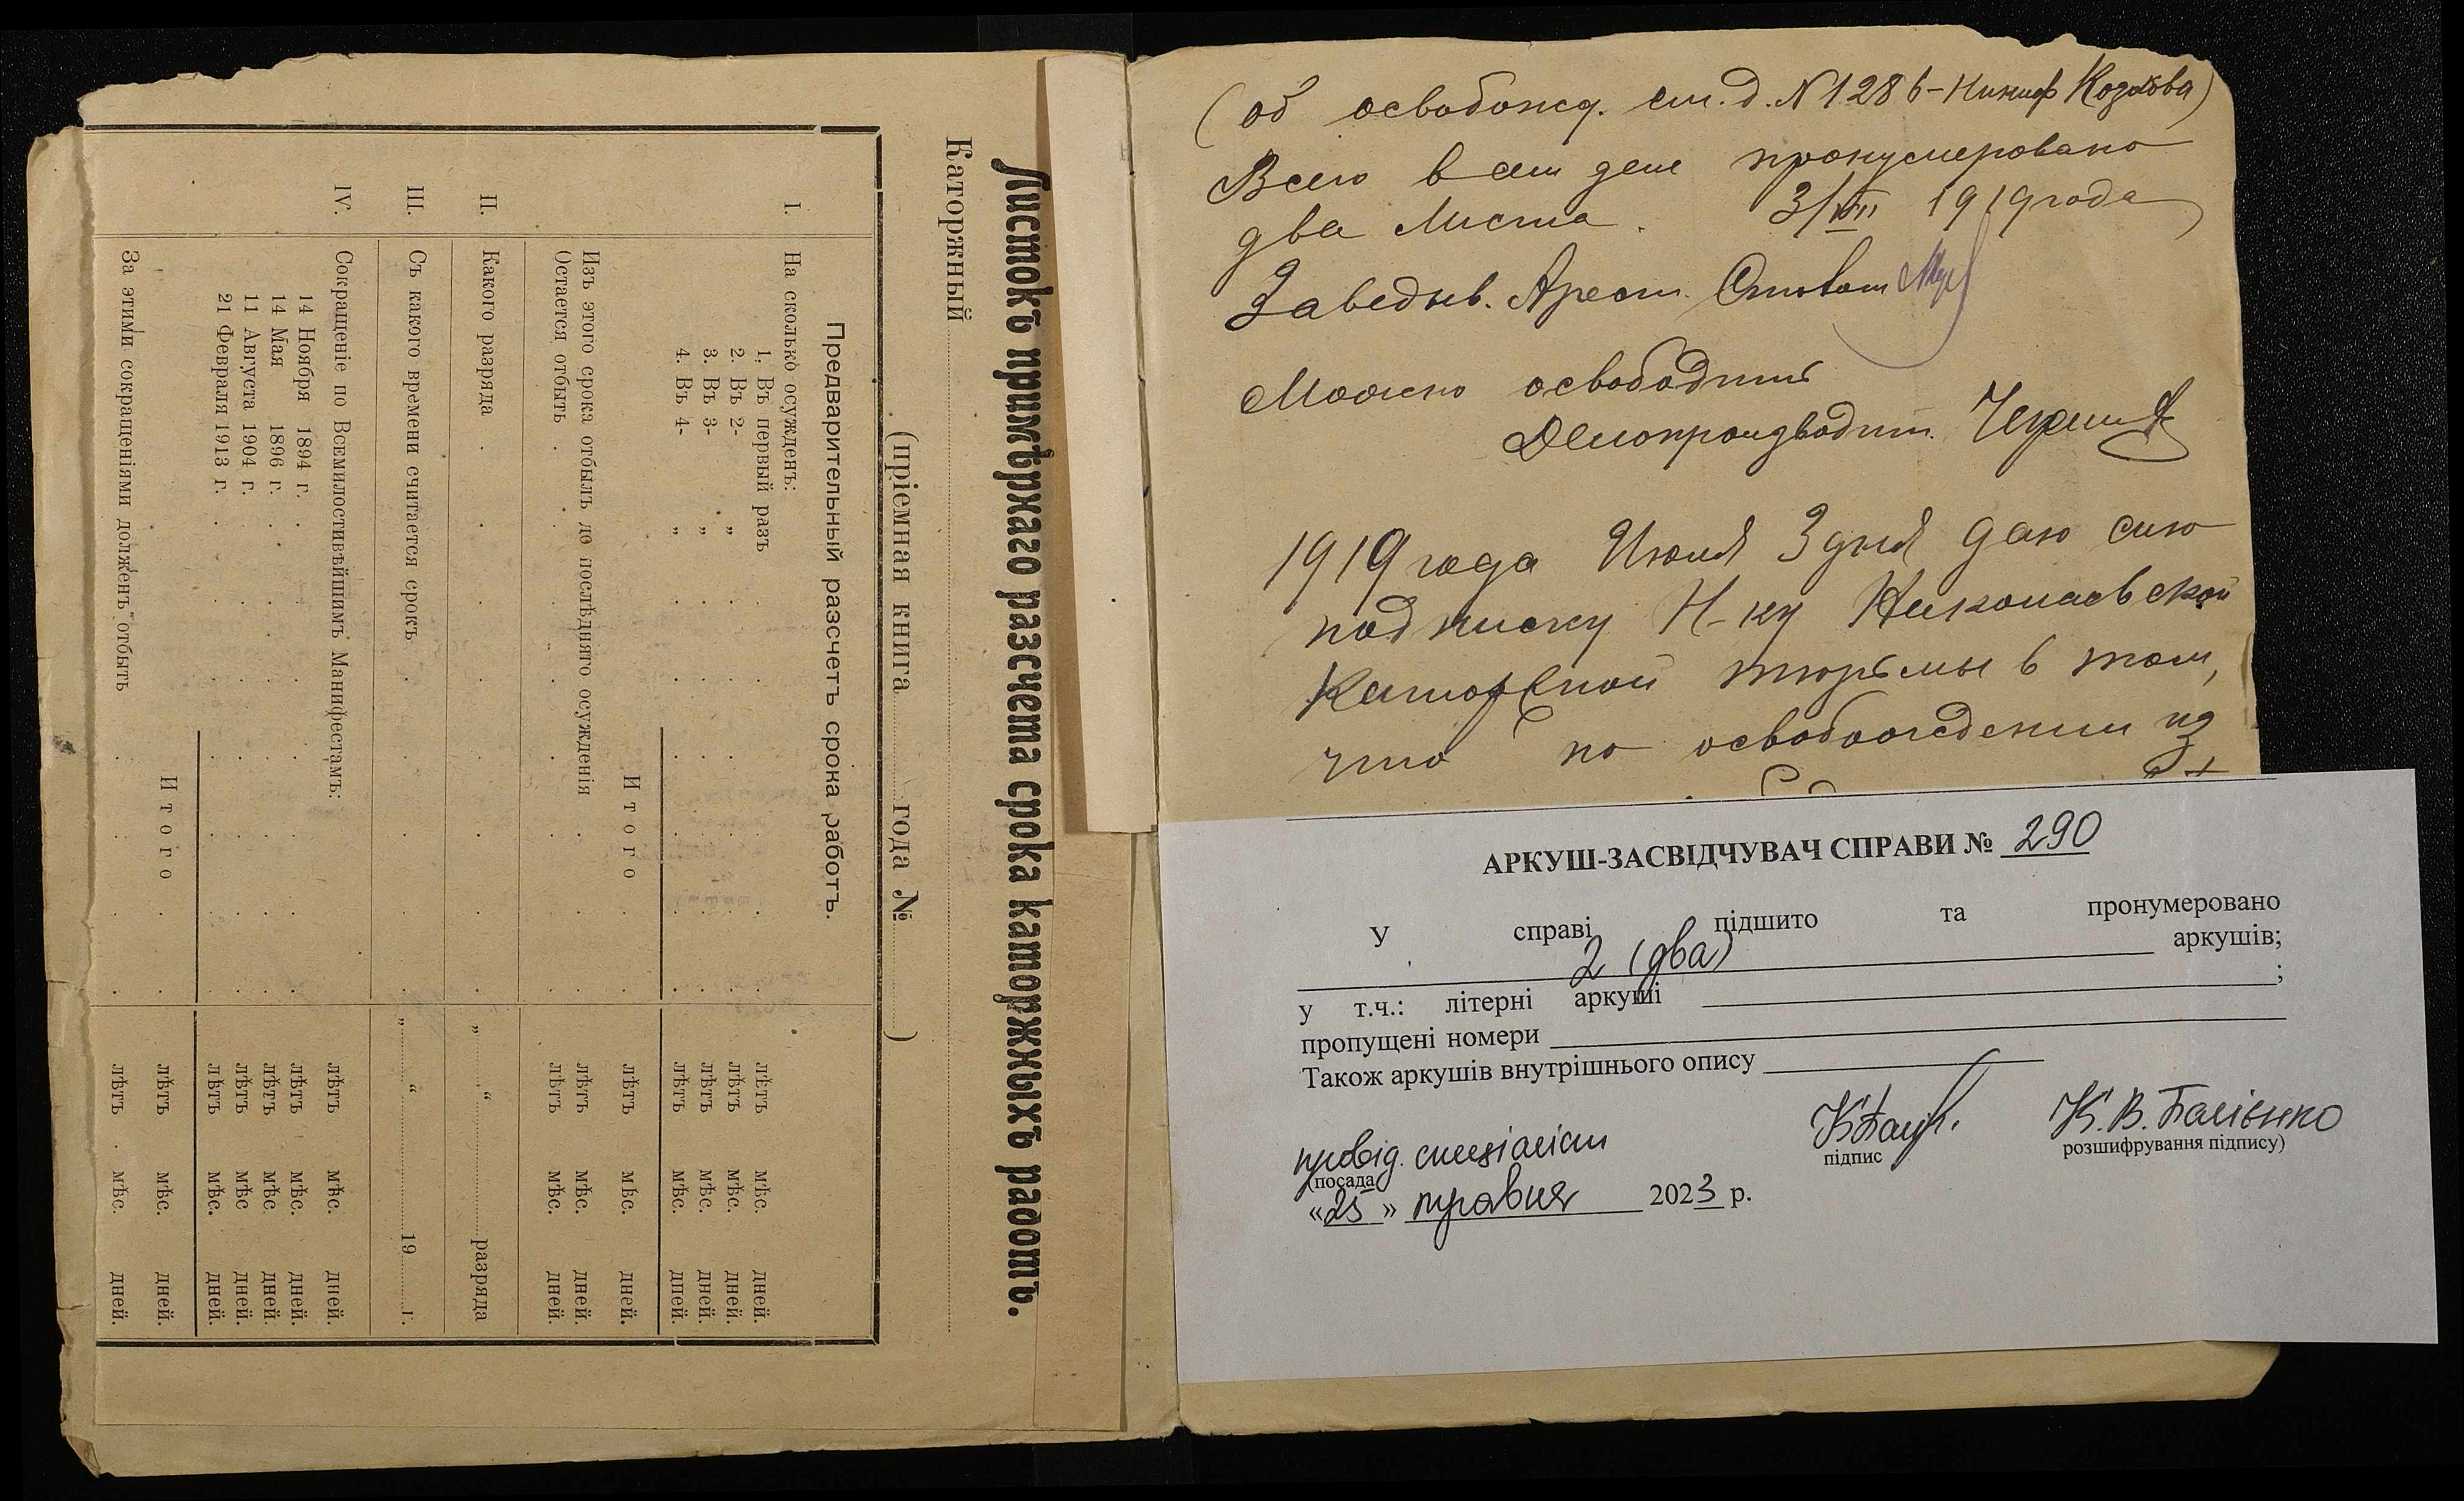 Листокъ примѣрнаго разсчета срока каторжныхъ работъ.
Каторжный
(пріемная книга года № )
Предварительный разсчетъ срока работъ.
I. На сколько осужденъ:
1. Въ первый разъ лѣтъ мѣс. дней.
2. Въ 2- „ лѣтъ мѣс. дней.
3. Въ 3- „ лѣтъ мѣс. дней.
4. Въ 4- „ лѣтъ мѣс. дней.
Итого лѣтъ мѣс. дней.
Изъ этого срока отбылъ до послѣдняго осужденія лѣтъ мѣс. дней.
Остается отбыть лѣтъ мѣс. дней.
II. Какого разряда „ “ разряда
III. Съ какого времени считается срокъ „ “ 19 г.
IV. Сокращеніе по Всемилостивѣйшимъ Манифестамъ: лѣтъ мѣс. дней.
14 Ноября 1894 г. лѣтъ мѣс. дней.
14 Мая 1896 г. лѣтъ мѣс. дней.
11 Августа 1904 г. лѣтъ мѣс. дней.
21 Февраля 1913 г. лѣтъ мѣс. дней.
Итого лѣтъ мѣс. дней.
За этими сокращеніями долженъ отбыть лѣтъ мѣс. дней.
(об освобожд. см. д. N 1286 - Никиф Козакова)
Всего в сем деле пронумеровано
два листа. 3/VII 1919 года
Заведыв. Арест.
Можно освободить
Делопроизводит.
1919 года Июля 3 дня даю сию
подписку Н-ку Николаевской
Каторжной тюрьмы в том,
что по освобождении из
АРКУШ-ЗАСВІДЧУВАЧ СПРАВИ № 290
У справі підшито та пронумеровано
2 (два) аркушів;
у т.ч.: літерні аркуші ;
пропущені номери
Також аркушів внутрішнього опису
провід. спеціаліст К.В.Балівко
(посада підпис розшифрування підпису)
«25» травня 2023 р.